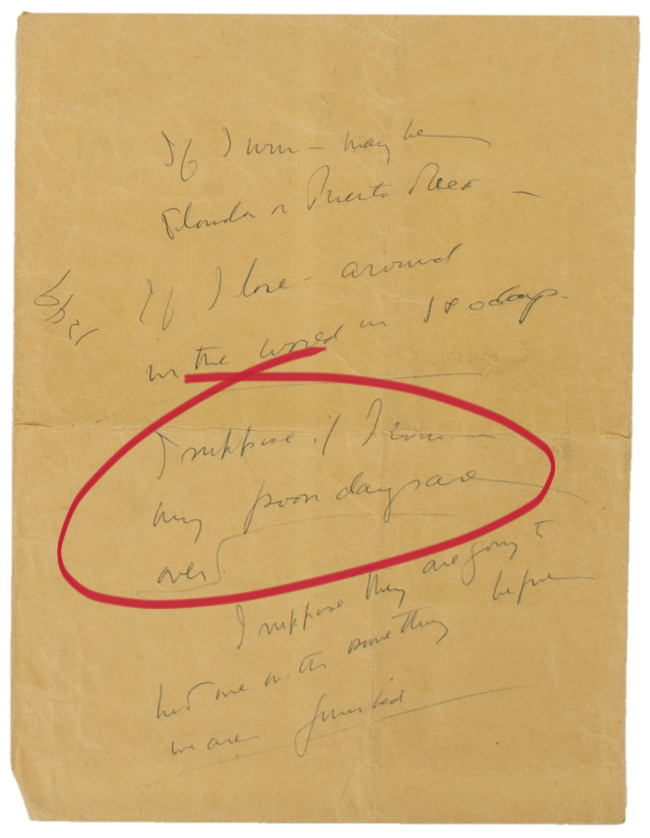 If I win — may be
Florida or Puerto Rico —
If I lose — around
in the world in 180 days.
I suppose if I win —
my poon days are
over
I suppose they are going to
hit me with something before
we are finished.